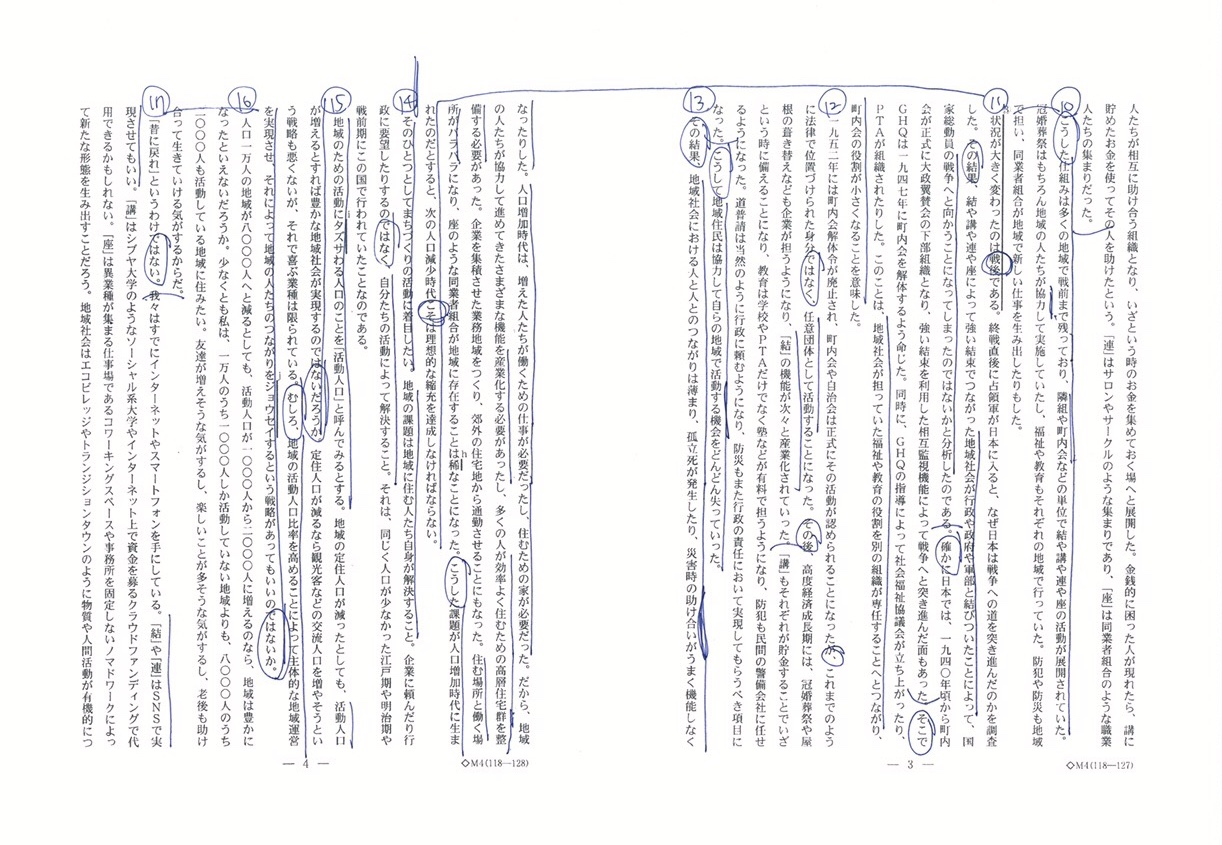 人たちが相互に助け合う組織となり、いざという時のお金を集めておく場へと展開した。金銭的に困った人が現れたら、講に
貯めたお金を使ってその人を助けたという。「連」はサロンやサークルのような集まりであり、「座」は同業者組合のような職業
人たちの集まりだった。
⑩ こうした仕組みは多くの地域で戦前まで残っており、隣組や町内会などの単位で結や講や連や座の活動が展開されていた。
冠婚葬祭はもちろん地域の人たちが協力して実施していたし、福祉や教育もそれぞれの地域で行っていた。防犯や防災も地域
で担い、同業者組合が地域で新しい仕事を生み出したりもした。
⑪ 状況が大きく変わったのは戦後である。終戦直後に占領軍が日本に入ると、なぜ日本は戦争への道を突き進んだのかを調査
した。その結果、結や講や連や座によって強い結束でつながった地域社会が行政や政府や軍部と結びついたことによって、国
家総動員の戦争へと向かうことになってしまったのではないかと分析したのである。確かに日本では、一九四〇年頃から町内
会が正式に大政翼賛会の下部組織となり、強い結束を利用した相互監視機能によって戦争へと突き進んだ面もあった。そこで
GHQは一九四七年に町内会を解体するよう命じた。同時に、GHQの指導によって社会福祉協議会が立ち上がったり、
PTAが組織されたりした。このことは、地域社会が担っていた福祉や教育の役割を別の組織が専任することへとつながり、
町内会の役割が小さくなることを意味した。
⑫ 一九五二年には町内会解体令が廃止され、町内会や自治会は正式にその活動が認められることになったが、これまでのよう
に法律で位置づけられた身分ではなく、任意団体として活動することになった。その後、高度経済成長期には、冠婚葬祭や屋
根の葺き替えなども企業が担うようになり、「結」の機能が次々と産業化されていった。「講」もそれぞれが貯金することでいざ
という時に備えることになり、教育は学校やPTAだけでなく塾などが有料で担うようになり、防犯も民間の警備会社に任せ
るようになった。道普請は当然のように行政に頼むようになり、防災もまた行政の責任において実現してもらうべき項目に
なった。こうして地域住民は協力して自らの地域で活動する機会をどんどん失っていった。
⑬ その結果、地域社会における人と人とのつながりは薄まり、孤立死が発生したり、災害時の助け合いがうまく機能しなく
— 3 —
◇M4(118—127)
なったりした。人口増加時代は、増えた人たちが働くための仕事が必要だったし、住むための家が必要だった。だから、地域
の人たちが協力して進めてきたさまざまな機能を産業化する必要があったし、多くの人が効率よく住むための高層住宅群を整
備する必要があった。企業を集積させた業務地域をつくり、郊外の住宅地から通勤させることにもなった。住む場所と働く場
所がバラバラになり、座のような同業者組合が地域に存在することは稀なことになった。こうした課題が人口増加時代に生ま
れたのだとすると、次の人口減少時代こそは理想的な縮充を達成しなければならない。
⑭ そのひとつとしてまちづくりの活動に着目したい。地域の課題は地域に住む人たち自身が解決すること。企業に頼んだり行
政に要望したりするのではなく、自分たちの活動によって解決すること。それは、同じく人口が少なかった江戸期や明治期や
戦前期にこの国で行われていたことなのである。
⑮ 地域のための活動にタズサわる人口のことを「活動人口」と呼んでみるとする。地域の定住人口が減ったとしても、活動人口
が増えるとすれば豊かな地域社会が実現するのではないだろうか。定住人口が減るなら観光客などの交流人口を増やそうとい
う戦略も悪くないが、それで喜ぶ業種は限られている。むしろ、地域の活動人口比率を高めることによって主体的な地域運営
を実現させ、それによって地域の人たちのつながりをジョウセイするという戦略があってもいいのではないか。
⑯ 人口一万人の地域が八〇〇〇人へと減るとしても、活動人口が一〇〇〇人から二〇〇〇人に増えるのなら、地域は豊かに
なったといえないだろうか。少なくとも私は、一万人のうち一〇〇〇人しか活動していない地域よりも、八〇〇〇人のうち
二〇〇〇人も活動している地域に住みたい。友達が増えそうな気がするし、楽しいことが多そうな気がするし、老後も助け
合って生きていける気がするからだ。
⑰ 「昔に戻れ」というわけではない。我々はすでにインターネットやスマートフォンを手にしている。「結」や「連」はSNSで実
現させてもいい。「講」はシブヤ大学のようなソーシャル系大学やインターネット上で資金を募るクラウドファンディングで代
用できるかもしれない。「座」は異業種が集まる仕事場であるコワーキングスペースや事務所を固定しないノマドワークによっ
て新たな形態を生み出すことだろう。地域社会はエコビレッジやトランジションタウンのように物質や人間活動が有機的につ
— 4 —
◇M4(118—128)